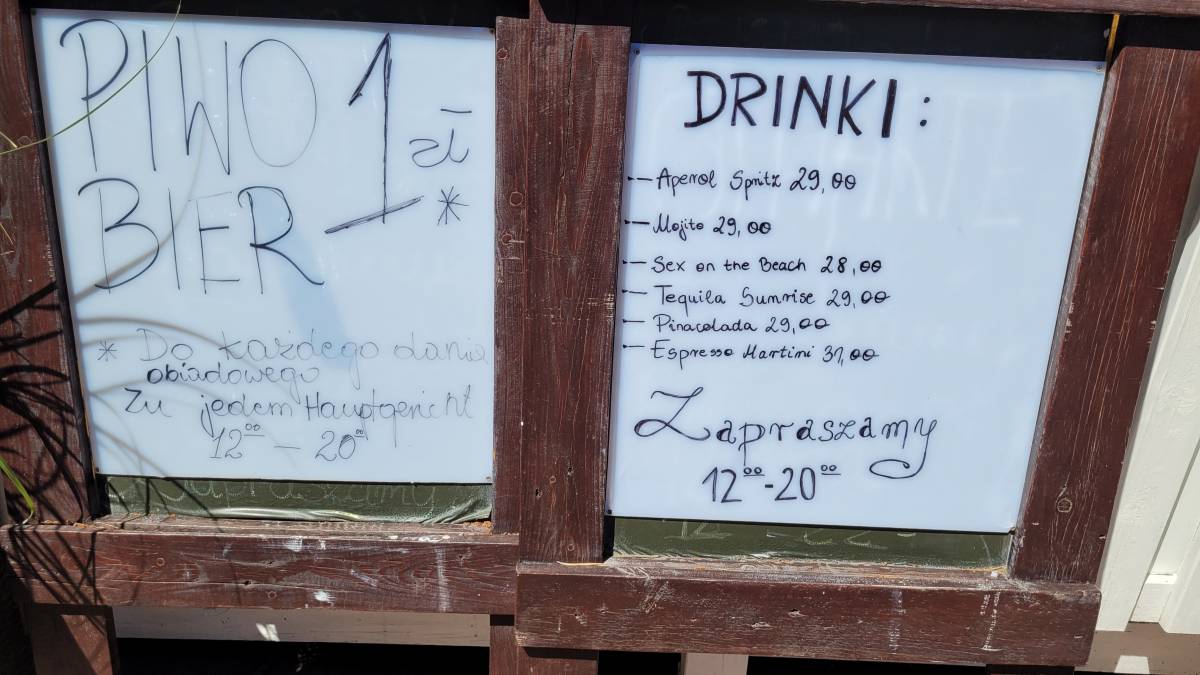 PIWO 1 zł
BIER *
* Do każdego dania
obiadowego
Zu jedem Hauptgericht
12⁰⁰ - 20⁰⁰
Zapraszamy
DRINKI:
- Aperol Spritz 29,00
- Mojito 29,00
- Sex on the Beach 28,00
- Tequila Sunrise 29,00
- Pinacolada 29,00
- Espresso Martini 31,00
Zapraszamy
12⁰⁰-20⁰⁰